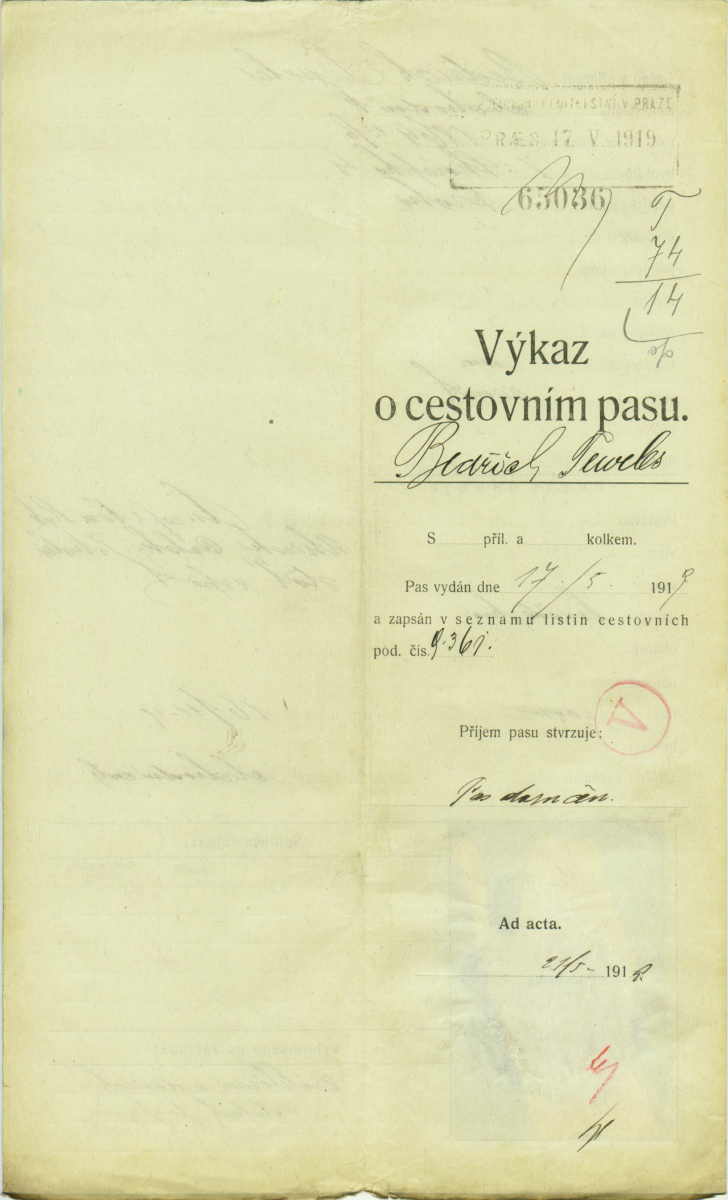 V PRAZE
PRÆS 17. V. 1919
65036
T
74
14
Výkaz
o cestovním pasu.
Bedřich Teweles
S příl. a kolkem.
Pas vydán dne 17./5. 1919
a zapsán v seznamu listin cestovních
pod. čís. 9.361.
Příjem pasu stvrzuje:
Pas doručen.
Ad acta.
21/5- 1919.